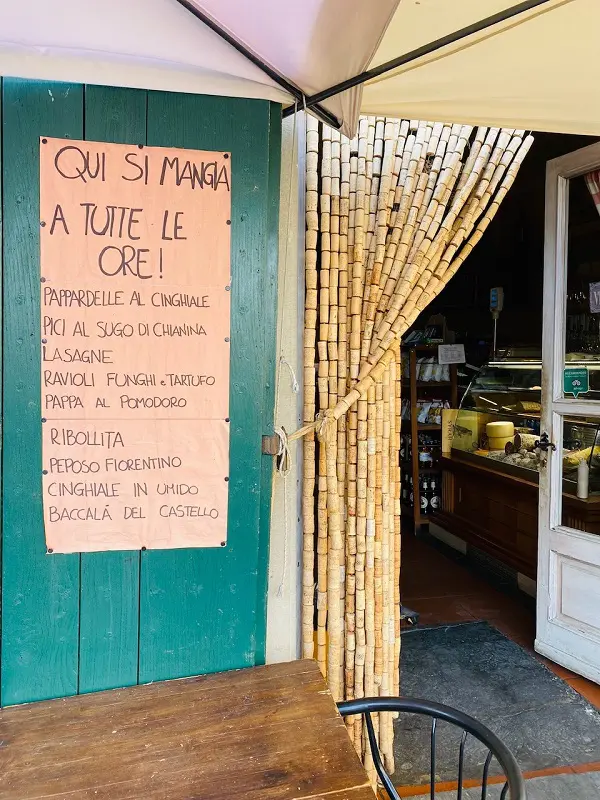 QUI SI MANGIA
A TUTTE LE
ORE!
PAPPARDELLE AL CINGHIALE
PICI AL SUGO DI CHIANINA
LASAGNE
RAVIOLI FUNGHI e TARTUFO
PAPPA AL POMODORO
RIBOLLITA
PEPOSO FIORENTINO
CINGHIALE IN UMIDO
BACCALÁ DEL CASTELLO